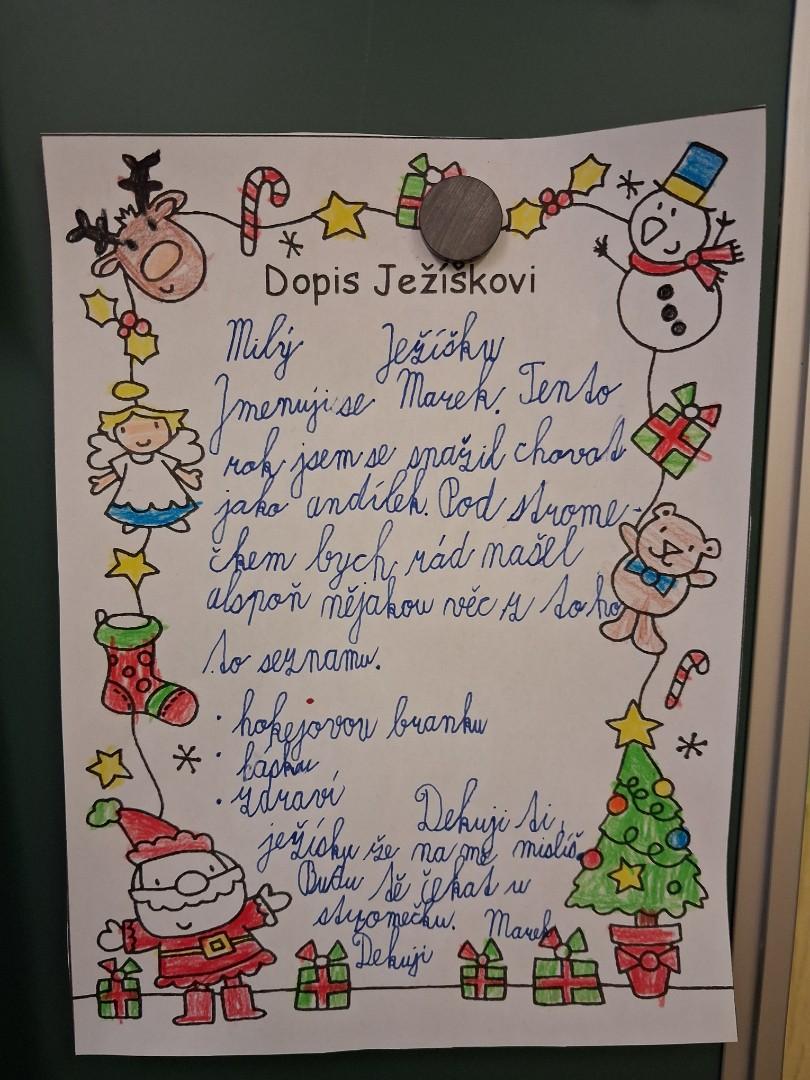 Dopis Ježíškovi
Milý Ježíšku
Jmenuji se Marek. Tento
rok jsem se snažil chovat
jako andílek. Pod strome-
čkem bych rád našel
alspoň nějakou věc z toho
to seznamu.
· hokejovou branku
· lásku
· zdraví
Dekuji ti,
ježíšku že na mě mislíš.
Budu tě čekat u
stromečku. Marek
Dekuji